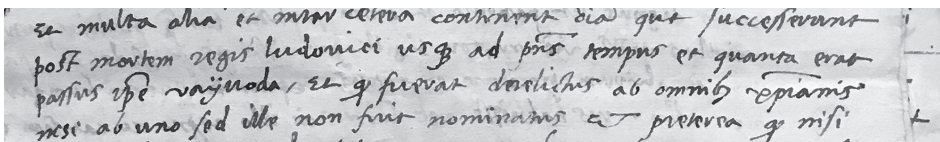 Et multa alia et inter cetera continent oīa que successerunt
post mortem regis ludovici usqȝ ad pn̄s tempus et quanta erat
passus ip̄e vayvoda, Et qͥ fuerat derelictus ab omnibȝ xp̄ianis
nisi ab uno sed ille non fuit nominatus et preterea qͥ nisi